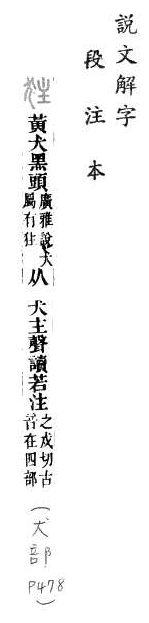 説文解字
段注本
㹥
黃犬黑頭
廣雅說犬
屬有㹥
从犬主聲讀若注
之戍切古
音在四部
(犬部 P478)